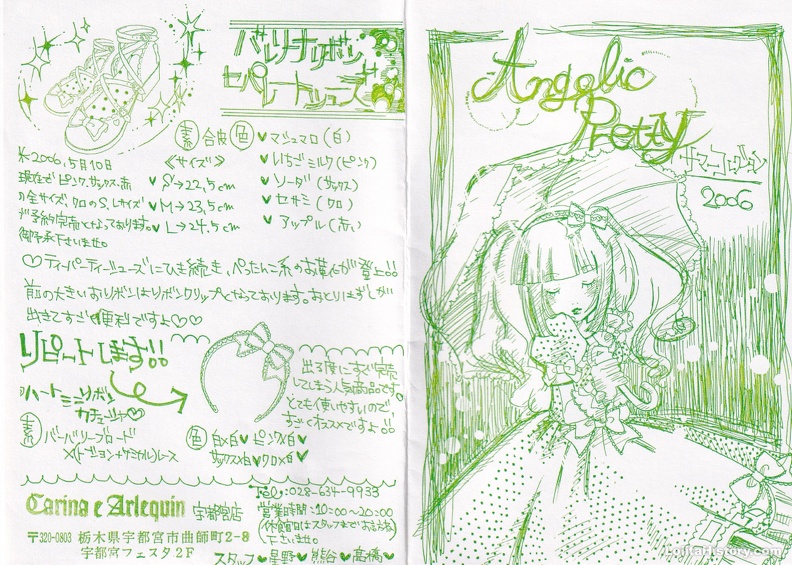 バレリーナリボン
セパレートシューズ
素 合皮 色 ♥マシュマロ(白)
♥いちごミルク(ピンク)
♥ソーダ(サックス)
♥セサミ(クロ)
♥アップル(赤)
《サイズ》
♥S→22,5cm
♥M→23,5cm
♥L→24,5cm
※2006,5月10日
現在でピンク,サックス,赤
の全サイズ,クロのS,Lサイズ
が予約完売となっております。
御了承下さいませ。
♡ティーパーティーシューズにひき続き、ぺったんこ系のお靴が登上!!
前の大きいおリボンはリボンクリップとなっております。おとりはずしが
出きてすごく便利ですよ♡♡
リピートします!!
ハートミニリボン
カチューシャ♡
素 バーバリーブロード
×(トーション+ケミカル)レース
出る度にすぐ完売
してしまう人気商品です。
とても使いやすいので
すごくオススメですよ!!
色 白×白♥ピンク×白♥
サックス×白♥クロ×白♥
Carina e Arlequin 宇都宮店
〒320-0803 栃木県宇都宮市曲師町2-8
宇都宮フェスタ2F
Tel:028-634-9933
営業時間:10:00~20:00
(休館日はスタッフまでお尋ね
下さいませ。)
スタッフ♥星野♥熊谷♥高橋♥
Angelic
Pretty
サマーコレクション
2006
LolitaHistory.com